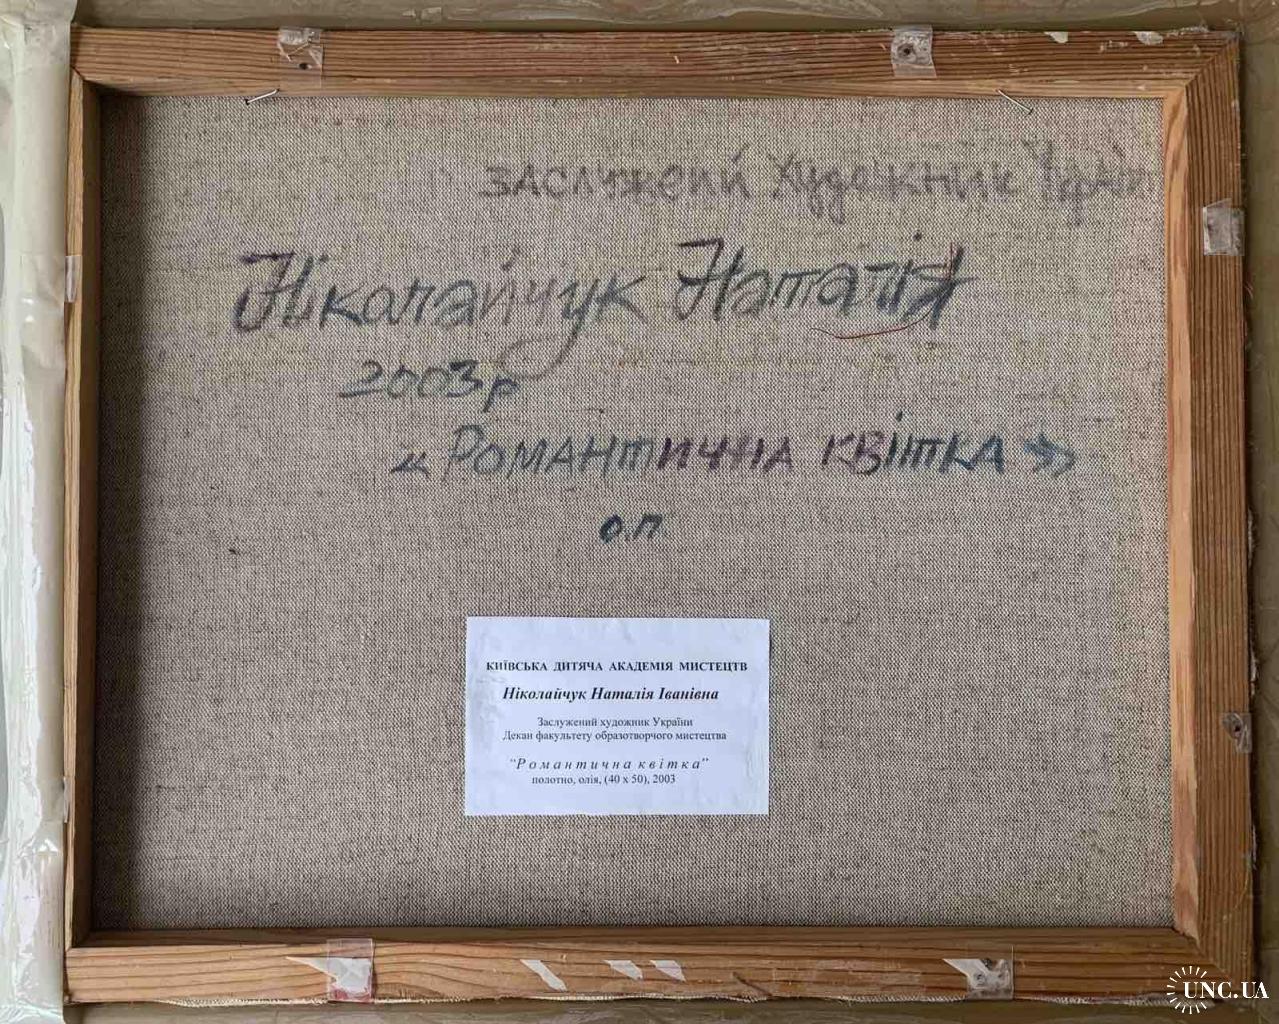 заслужений художник Україн
Ніколайчук Наталія
2003р
« Романтична квітка »
о.п.
КИЇВСЬКА ДИТЯЧА АКАДЕМІЯ МИСТЕЦТВ
Ніколайчук Наталія Іванівна
Заслужений художник України
Декан факультету образотворчого мистецтва
“Романтична квітка”
полотно, олія, (40 х 50), 2003
UNC.UA